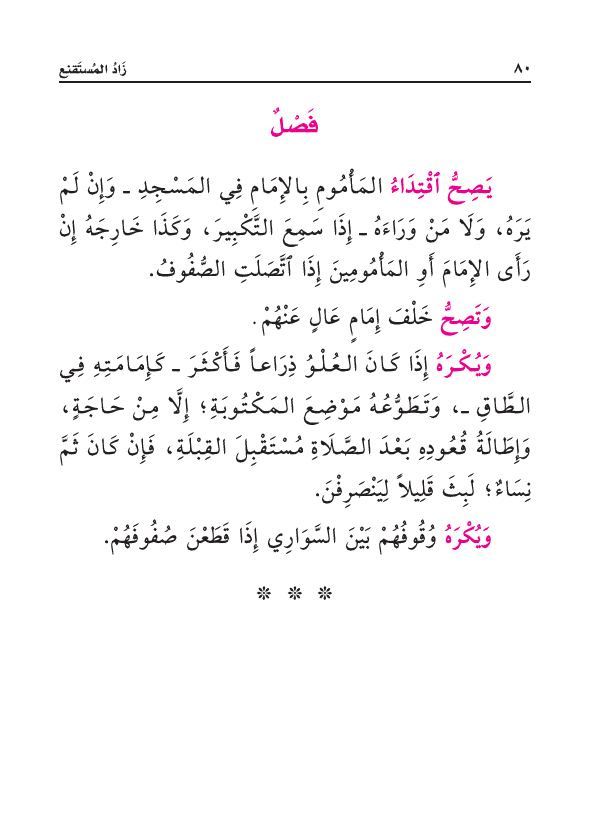 ٨٠ زَادُ المُستَقنِع
فَصْلٌ
يَصِحُّ ٱقْتِدَاءُ المَأْمُومِ بِالإِمَامِ فِي المَسْجِدِ ـ وَإِنْ لَمْ
يَرَهُ، وَلَا مَنْ وَرَاءَهُ ـ إِذَا سَمِعَ التَّكْبِيرَ، وَكَذَا خَارِجَهُ إِنْ
رَأَى الإِمَامَ أَوِ المَأْمُومِينَ إِذَا ٱتَّصَلَتِ الصُّفُوفُ.
وَتَصِحُّ خَلْفَ إِمَامٍ عَالٍ عَنْهُمْ.
وَيُكْرَهُ إِذَا كَانَ العُلْوُ ذِرَاعاً فَأَكْثَرَ ـ كَإِمَامَتِهِ فِي
الطَّاقِ ـ، وَتَطَوُّعُهُ مَوْضِعَ المَكْتُوبَةِ؛ إِلَّا مِنْ حَاجَةٍ،
وَإِطَالَةُ قُعُودِهِ بَعْدَ الصَّلَاةِ مُسْتَقْبِلَ القِبْلَةِ، فَإِنْ كَانَ ثَمَّ
نِسَاءٌ؛ لَبِثَ قَلِيلاً لِيَنْصَرِفْنَ.
وَيُكْرَهُ وُقُوفُهُمْ بَيْنَ السَّوَارِي إِذَا قَطَعْنَ صُفُوفَهُمْ.
❊ ❊ ❊